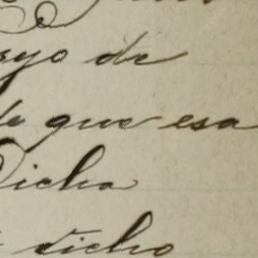 de
que esa
Dicha
dicho